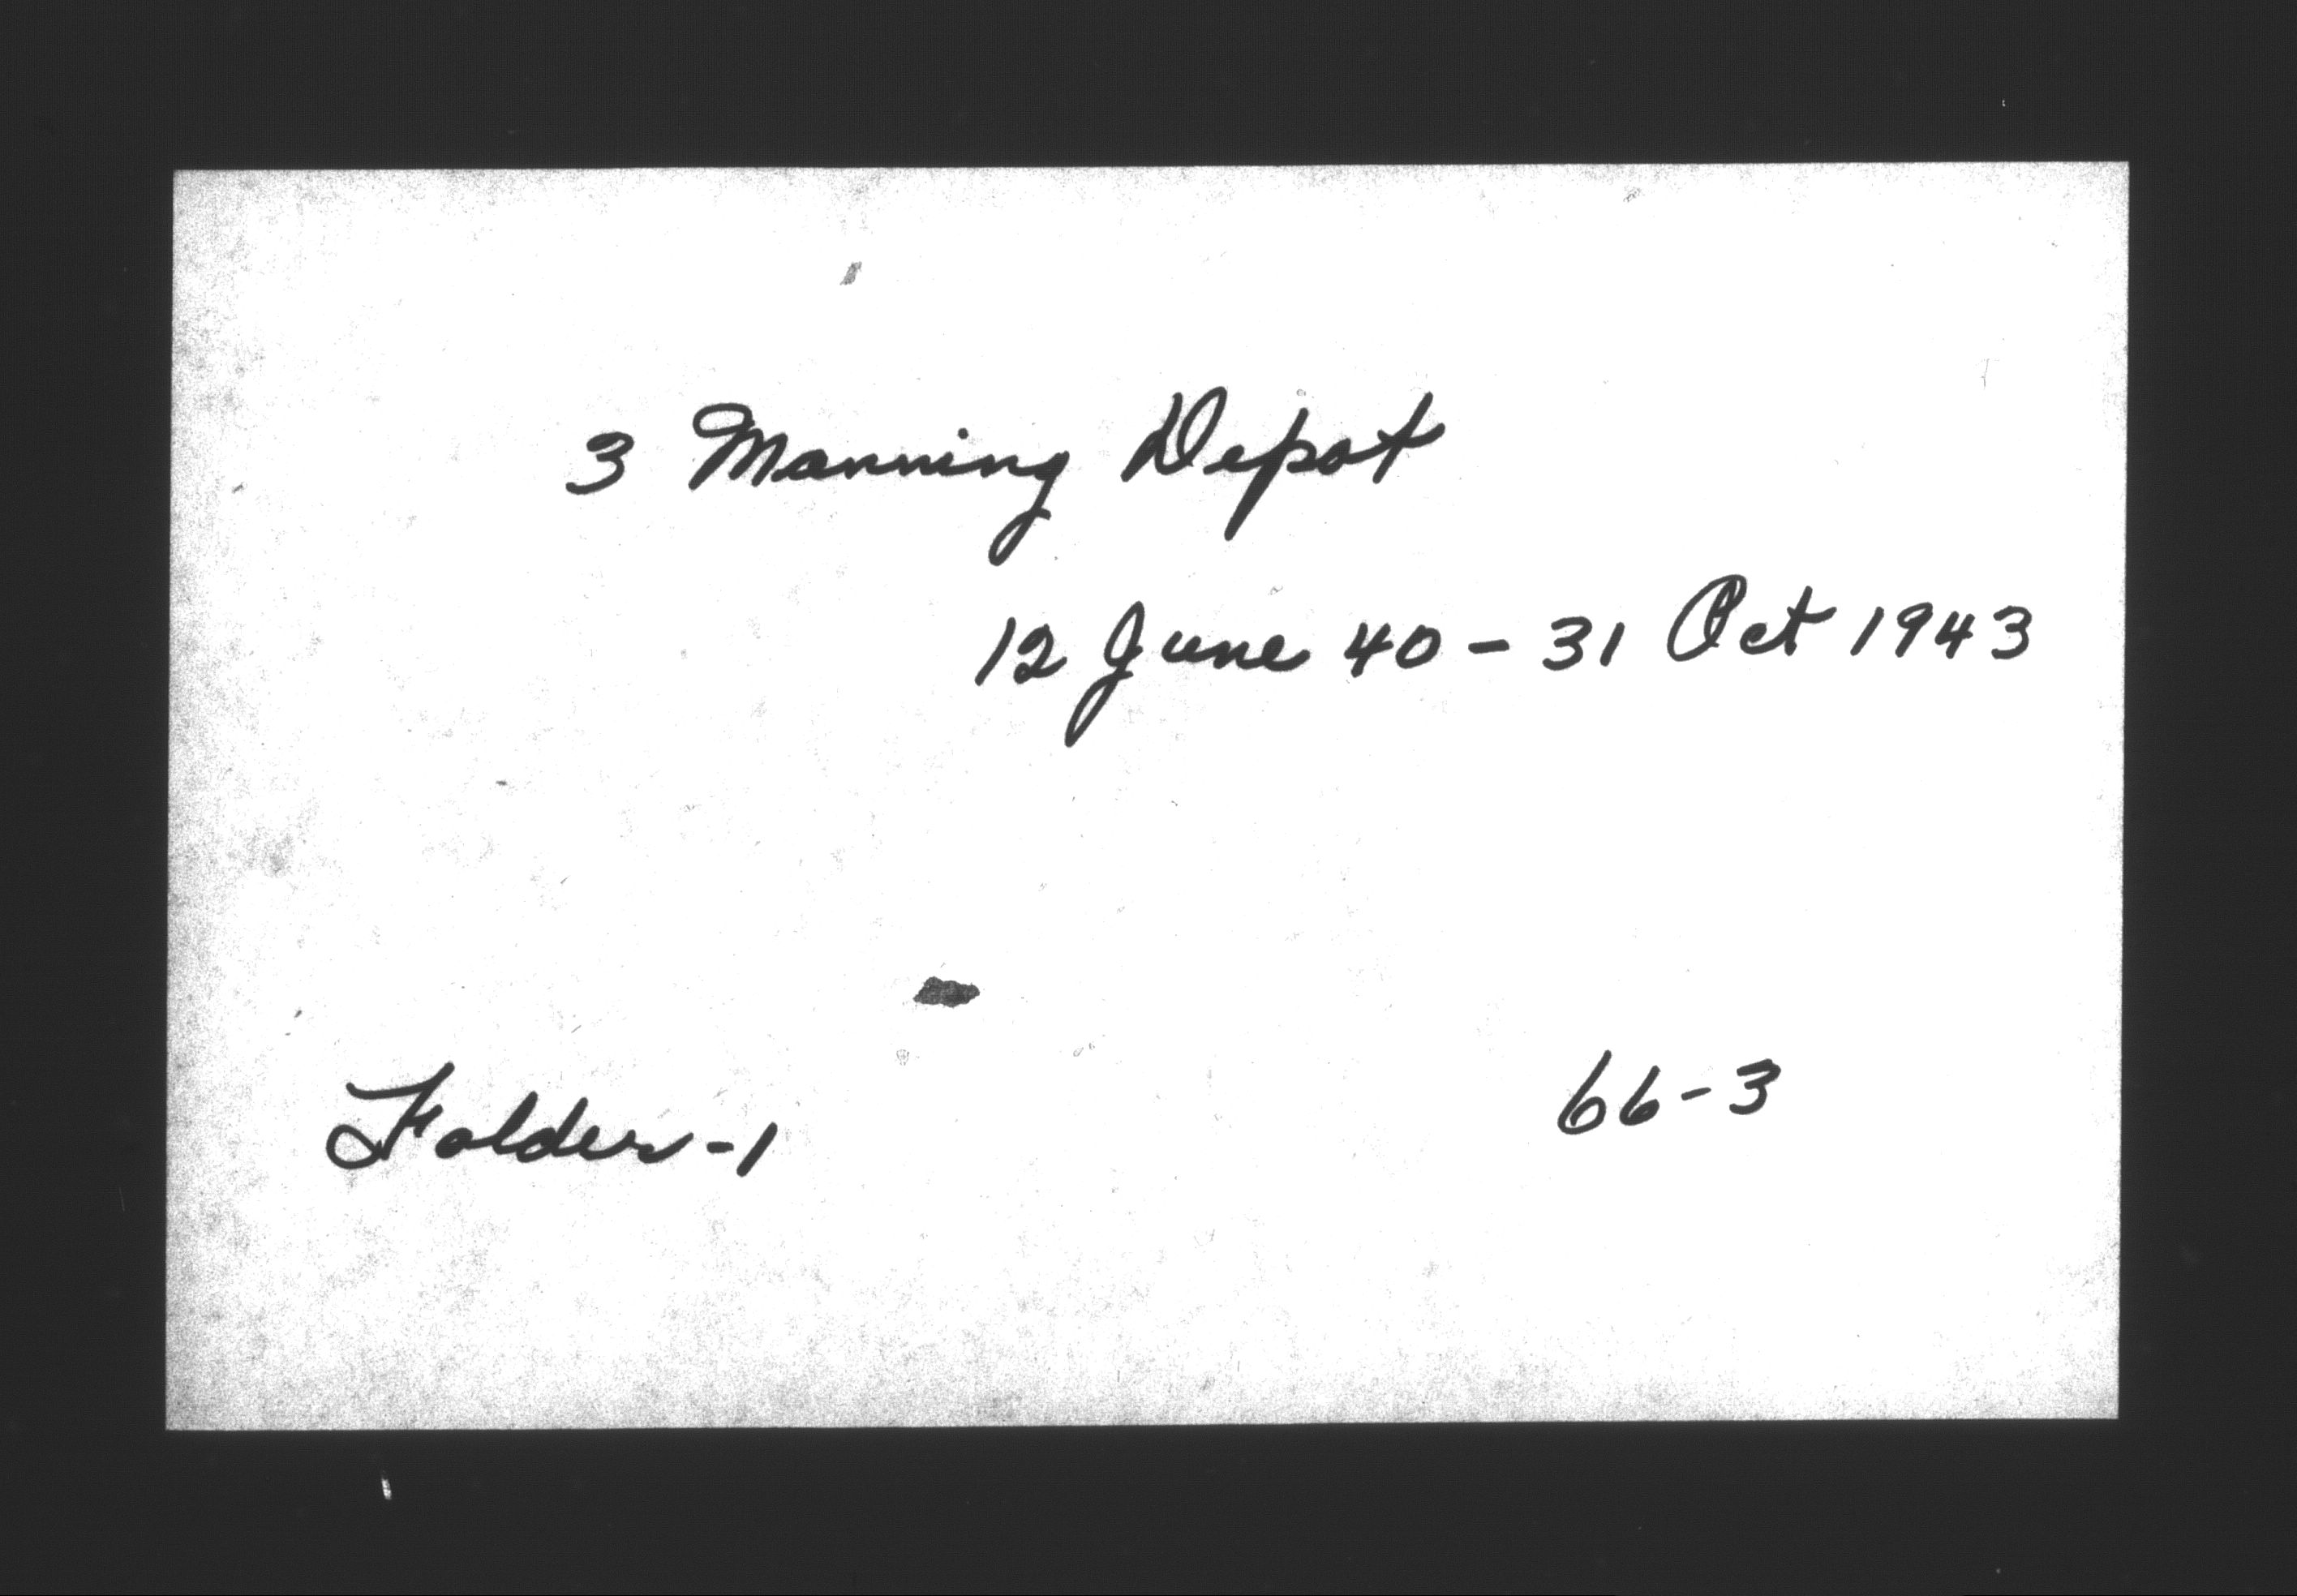 3 Manning Depot
12 June 40 - 31 Oct 1943
Folder-1
66-3